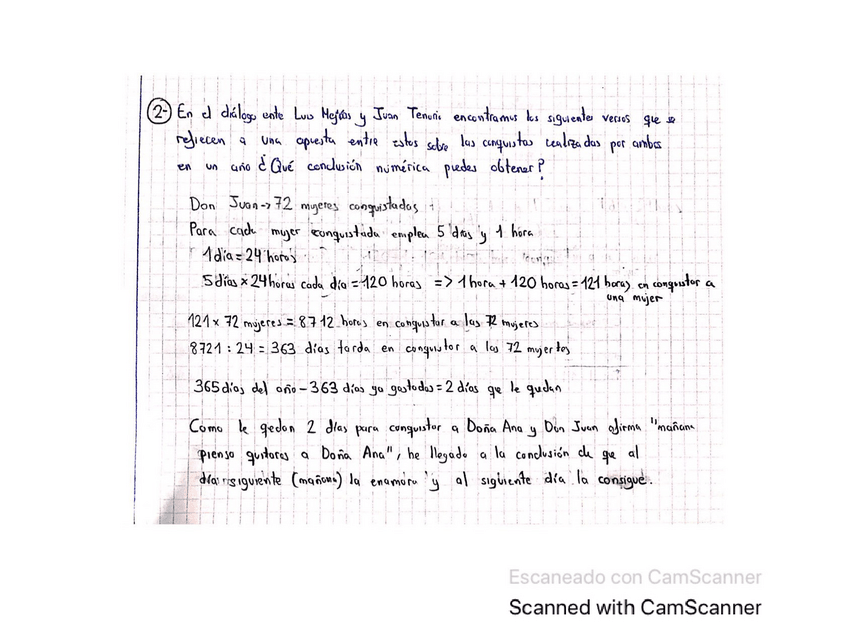 2- En el diálogo ente Luis Mejías y Juan Tenorio encontramos los siguientes versos que se
refiecen a una apuesta entre estos sobre las conquistas realizadas por ambos
en un año ¿Qué conclusión numérica puedes obtener?
Don Juan → 72 mujeres conquistadas
Para cada mujer conquistada emplea 5 días y 1 hora
1 día = 24 horas
5 días x 24 horas cada día = 120 horas => 1 hora + 120 horas = 121 horas en conquistar a
una mujer
121 x 72 mujeres = 8712 horas en conquistar a las 72 mujeres
8721 : 24 = 363 días tarda en conquistar a las 72 mujeres
365 días del año - 363 días ya gastados = 2 días que le quedan
Como le qedan 2 días para conquistar a Doña Ana y Don Juan afirma "mañana
pienso quitaros a Doña Ana", he llegado a la conclusión de que al
día siguiente (mañana) la enamora y al sigüiente día la consigue.
Escaneado con CamScanner
Scanned with CamScanner